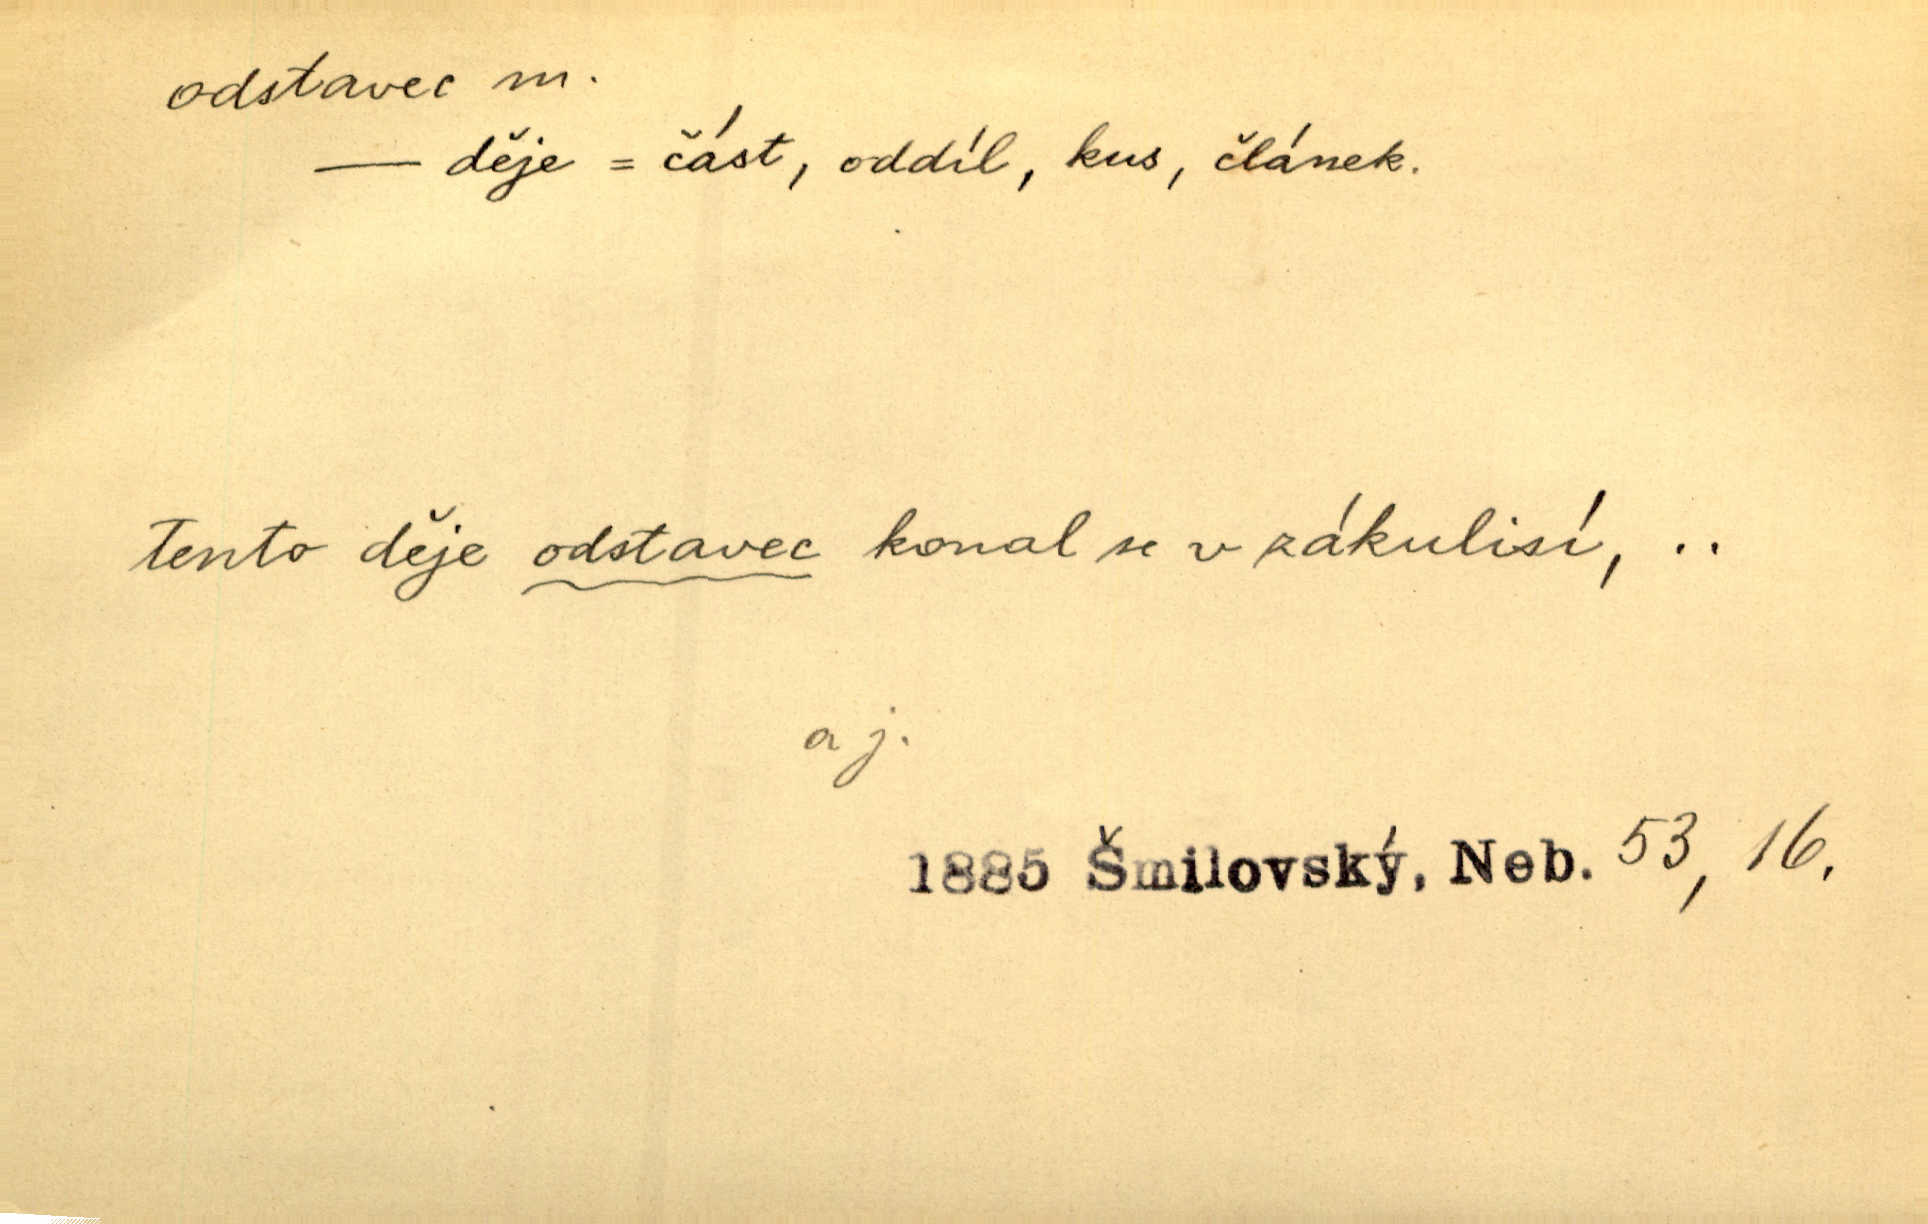 odstavec m.
— děje = část, oddíl, kus, článek.
Tento děje odstavec konal se v zákulisí, ..
a j.
1885 Šmilovský, Neb. 53, 16.